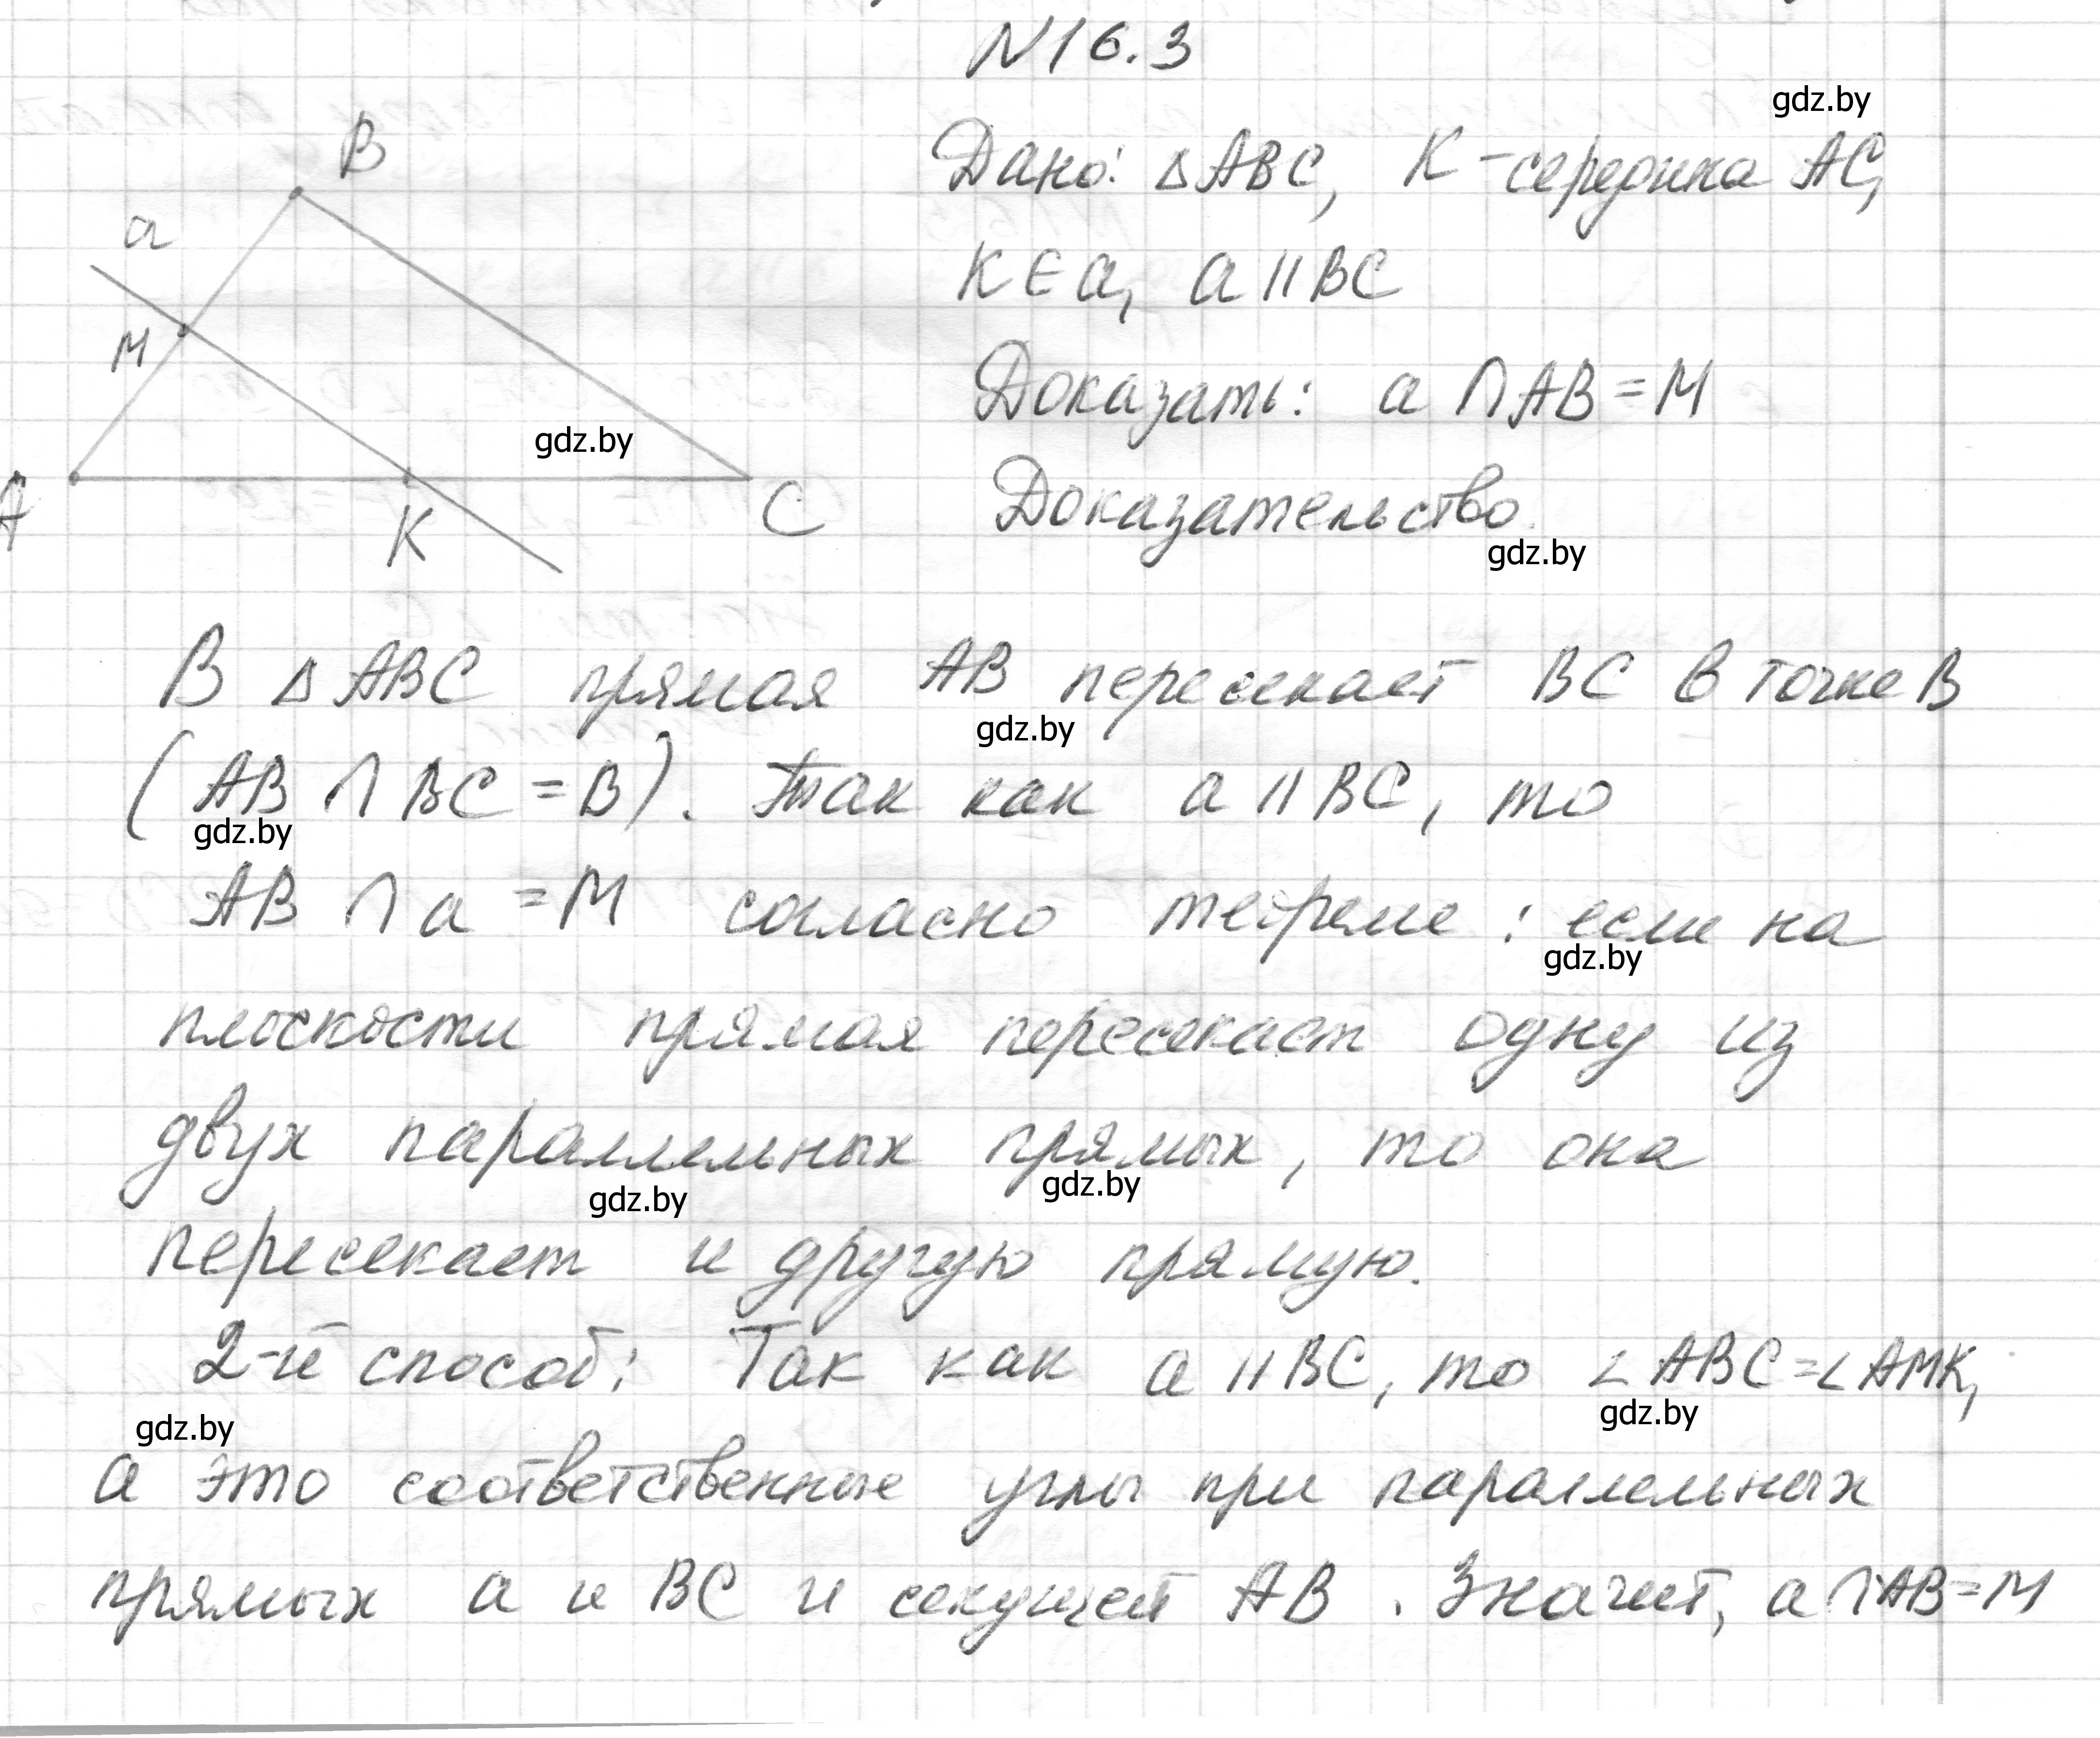 N16.3
gdz.by
Дано: △ABC, K-середина AC,
K∈a, a||BC
Доказать: a ∩ AB = M
Доказательство.
gdz.by
B
a
M
gdz.by
A
K
C
В △ABC прямая AB пересекает BC в точке B
gdz.by
(AB ∩ BC = B). Так как a || BC, то
gdz.by
AB ∩ a = M согласно теореме: если на
gdz.by
плоскости прямая пересекает одну из
двух параллельных прямых, то она
gdz.by gdz.by
пересекает и другую прямую.
2-й способ: Так как a || BC, то ∠ABC = ∠AMK,
gdz.by gdz.by
а это соответственные углы при параллельных
прямых a и BC и секущей AB. Значит, a ∩ AB = M